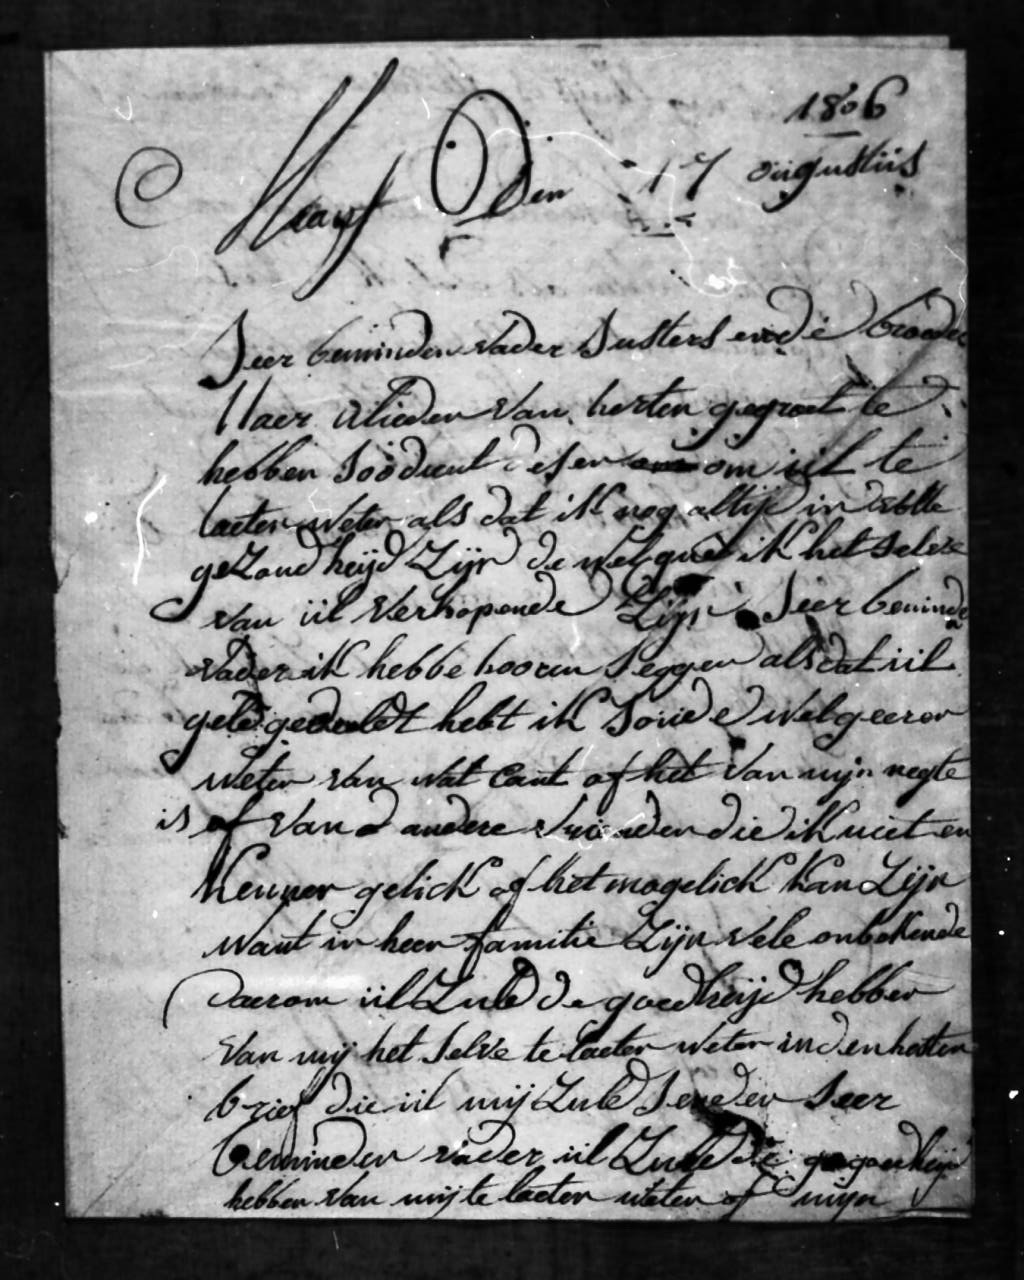 1806
Den 17 oügustüs
Seer beminden vader Susters ende brooder
Naer ulieden van herten gegroet te
hebben Soo dient desen om üil te
laeten weten als dat ik nog altijt in volle
geZond heijd Zijn de welque ik het selve
van üil verhopende Zijn Seer beminde
vader ik hebbe hooren Seggen als dat üil
geldt hebt ik Soude wel geeren
weten van wat cant of het van mijn negte
is of van andere vrienden die ik niet en
kennen gelick of het mogelick kan Zijn
want in heer familie Zijn vele onbekende
daerom üil Zuld de goedheijd hebben
van mij het selve te laeten weten in den
brief die üil mij Zuld Senden Seer
beminden vader üil Zuld de goedheijd
hebben van mij te laeten weten of mijn